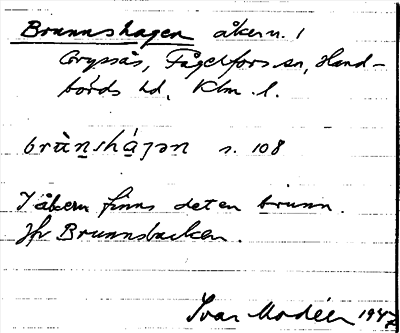 Brunnshagen åkern. 1
Gryssås, Fågelfors sn, Hand-
börds hd, Klm. l.
brùn̥shá̀gən s. 108
I åkern finns det en brunn.
Jfr Brunnsbacken.
Ivar Modéer 1947